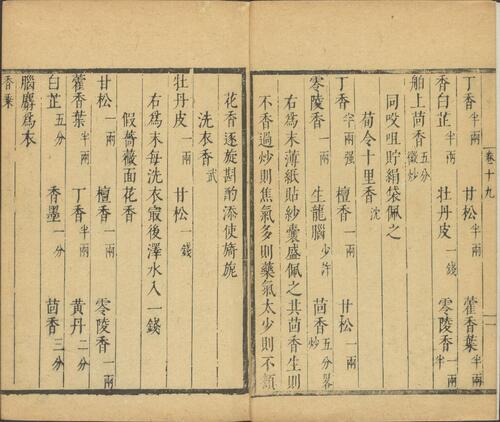 丁香半兩 甘松半兩 藿香葉半兩
香白芷半兩 牡丹皮一錢 零陵香一兩半
舶上茴香五分微炒
同㕮咀貯絹袋佩之
荀令十里香沈
丁香半兩强 檀香一兩 甘松一兩
零陵香一兩 生龍腦少許 茴香五分畧炒
右爲末薄紙貼紗囊盛佩之其茴香生則
不香過炒則焦氣多則藥氣太少則不類
花香逐旋斟酌添使旖旎
洗衣香武
牡丹皮一兩 甘松一錢
右爲末每洗衣最後澤水入一錢
假薔薇面花香
甘松一兩 檀香一兩 零陵香一兩
藿香葉半兩 丁香半兩 黃丹二分
白芷五分 香墨一分 茴香三分
腦麝爲衣
卷十九
香乘